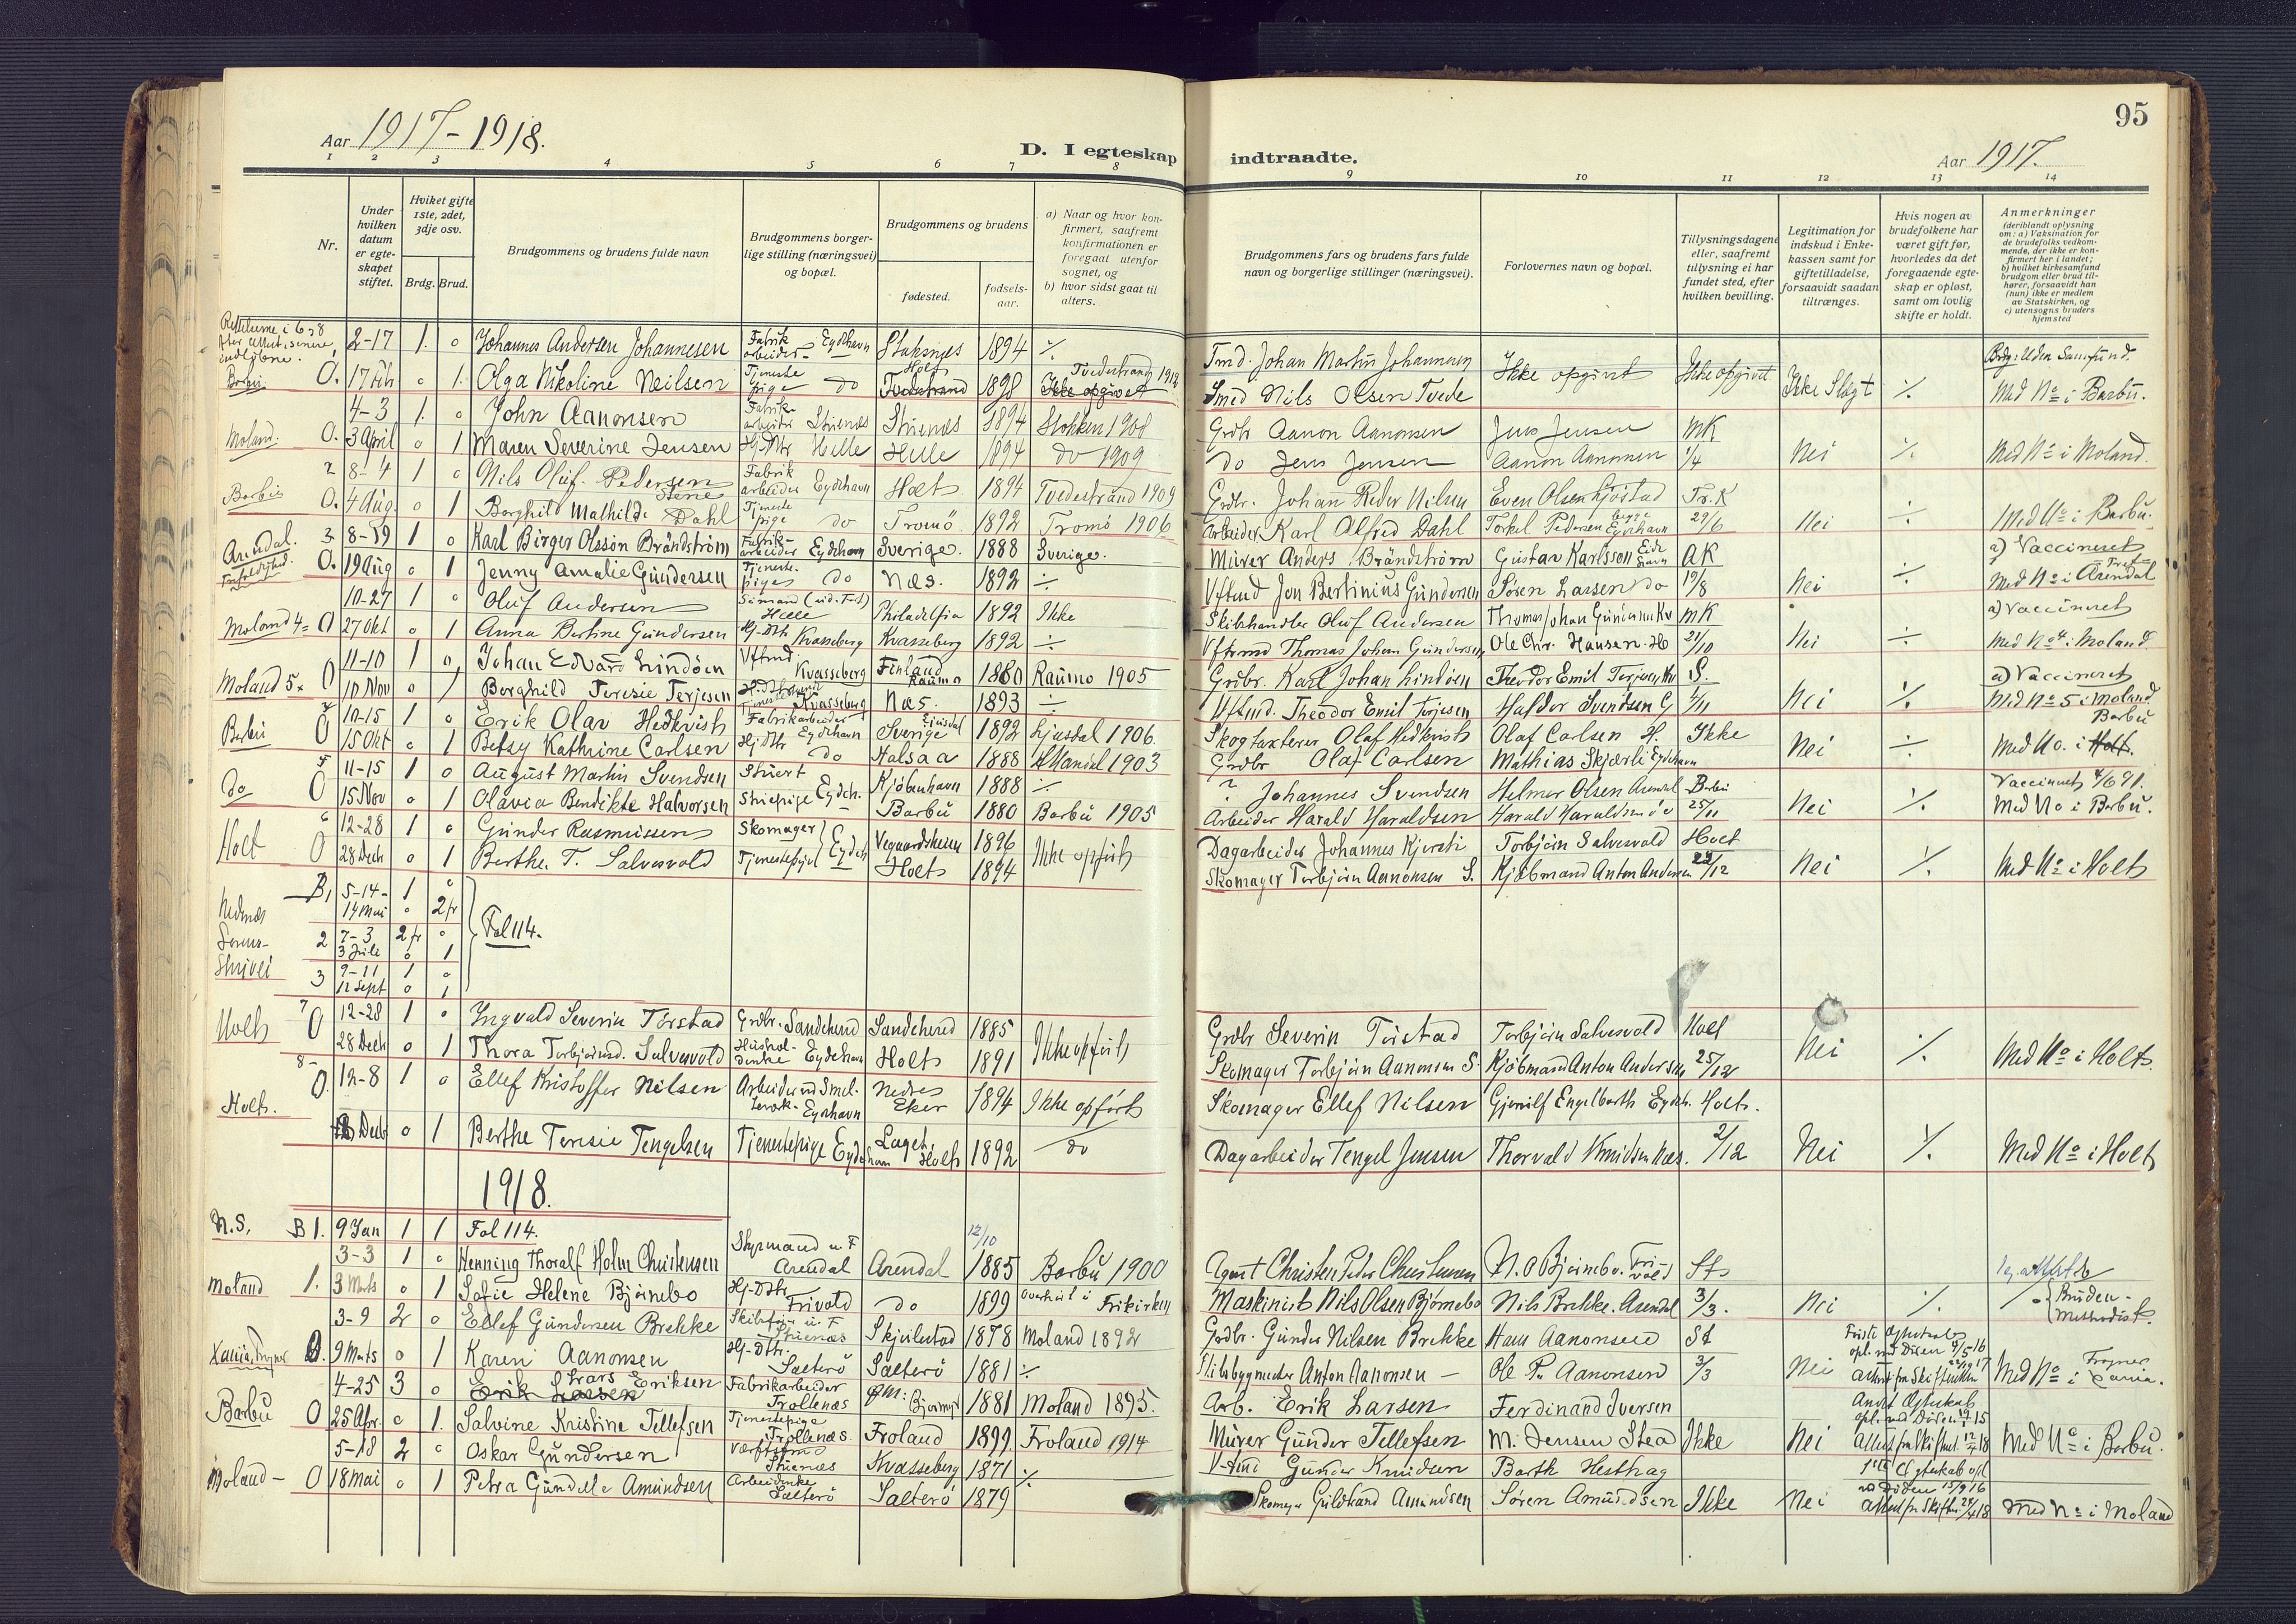 95
Aar 1917-1918.
D. I egteskap
indtraadte.
Aar 1917.
1 2 3 4 5 6 7 8
9 10 11 12 13 14
Nr.
Under hvilken datum er egte-skapet stiftet.
Hviket gifte 1ste, 2det, 3dje osv.
Brdg. Brud.
Brudgommens og brudens fulde navn
Brudgommens borger-lige stilling (næringsvei) og bopæl.
Brudgommens og brudens
fødested.
fødsels-aar.
a) Naar og hvor kon-firmert, saafremt konfirmationen er foregaat utenfor sognet, og
b) hvor sidst gaat til alters.
Brudgommens fars og brudens fars fulde navn og borgerlige stillinger (næringsvei).
Forlovernes navn og bopæl.
Tillysningsdagene eller, saafremt tillysning ei har fundet sted, efter hvilken bevilling.
Legitimation for indskud i Enke-kassen samt for giftetilladelse, forsaavidt saadan tiltrænges.
Hvis nogen av brudefolkene har været gift før, hvorledes da det foregaaende egte-skap er opløst, samt om lovlig skifte er holdt.
Anmerkninger (deriblandt oplysning om: a) Vaksination for de brudefolks vedkom-mende, der ikke er kon-firmert her i landet; b) hvilket kirkesamfund brudgom eller brud til-hører, forsaavidt han (hun) ikke er medlem av Statskirken, og c) utensogns bruders hjemsted
2-17 1. o Johannes Andersen Johannesen Fabrik arbeider Eydehavn Staksnes 1894 ./. Tmd. Johan Martin Johannesen Ikke opgivet Ikke opgivet Ikke Slegt ./. Brdg: Uden Samfund.
Barbu 0. 17 Feb o 1. Olga Nikoline Neilsen Tjeneste pige do Holt Tvedestrand 1898 Tvedestrand 1912 Ikke opgivet Smed Nils Olsen Tvede Med No i Barbu.
4-3 1. o John Aanonsen Fabrik-arbeider Stuenes Stuenes 1894 Stokken 1908 Grdbr Aanon Aanonsen Jens Jensen MK
Moland. 0. 3 April o 1 Maren Severine Jensen Hj. Dtr Helle Helle 1894 do 1909 do Jens Jensen Aanon Aanonsen 1/4 Nei ./. Med No i Moland.
2 8-4 1 o Nils Oluf Pedersen Stene Fabrik arbeider Eydehavn Holt 1894 Tvedestrand 1909 Grdbr. Johan Peder Nilsen Even Olsen Tr. K
Barbu 0. 4 Aug. o 1 Borghild Mathilde Dahl Tjeneste pige do Tromö 1892 Tromö 1906 Arbeider Karl Alfred Dahl Torkel Pedersen begge Eydehavn 29/6 Nei ÷ Med No i Barbu.
Arendal. 3 8-19 1 o Karl Birger Olssön Brändström Fabrik-arbeider Eydehavn Sverige. 1888 Sverige. Mürer Anders Brändström Gustav Karlsson Eydehavn AK a) Vaccineret
0. 19 Aug o 1 Jenny Amalie Gundersen Tjeneste-pige do Næs. 1892 ÷ Vftmd Jon Bertinius Gundersen Søren Larsen do 19/8 Nei ÷ Med No i Arendal
10-27 1 o Oluf Andersen Sömand Helle Philadelfia 1892 Ikke Skibshandler Oluf Andersen Thomas Johan Gundersen Kv MK a) Vaccineret
Moland 4 0 27 Okt o 1 Anna Bertine Gundersen Hj-Dtr Kvasseberg Kvasseberg 1892 ÷ Vftmd Thomas Johan Gundersen Ole Chr. Hansen Ho 21/10 Nei ÷ Med No 4 i Moland.
11-10 1 o Johan Edvard Lindöen Vftmd Kvasseberg Finland Raumo 1880 Raumo 1905 Grdbr. Karl Johan Lindöen Theodor Emil Terjesen S. a) Vaccineret
Moland 5 0 10 Nov o 1 Borghild Teresie Terjesen Kvasseberg Næs. 1893 ÷ Vftmd. Theodor Emil Terjesen Halfdor Svendsen 4/11 Nei ./. Med No 5 i Moland
10-15 1 o Erik Olav Hedkvist Fabrikarbeider Eydehavn Sverige Ljusdal 1892 Ljusdal 1906 Skogtaxterer Olaf Hedkvist Olaf Carlsen H. Ikke Barbu
Barbu 0 15 Okt o 1 Betsy Kathrine Carlsen Hj Dtr do Halsaa 1888 Mandal 1903 Grdbr Olaf Carlsen Mathias Skjærli Eydehavn Nei ÷ Med No. i Holt.
11-15 1 o August Martin Svendsen Stuert Kjöbenhavn 1888 ./. ? Johannes Svendsen Helmer Olsen Arendal Barbu Vaccineret 4/6 91.
do 0 15 Nov o 1 Olavia Bendikte Halvorsen Stuepige Eydeh. Barbu 1880 Barbu 1905 Arbeider Harald Haraldsen Harald Haraldsen do 25/11 Nei ./. Med No i Barbu.
6 12-28 1 o Gunder Rasmussen Skomager Eydeh Vegaardsheien 1896 Ikke opfört Dagarbeider Johannes Kjersti Torbjörn Salvesvold Holt
Holt 0 28 Dech o 1 Berthe T. Salvesvold Tjenestepige Holt 1894 Skomager Torbjörn Aanonsen S. Kjöbmand Anton Andersen 23/12 Nei ./. Med No i Holt
Nednæs Sorens-skriveri B1 5-14 1 o
14 Mai o 2 fr
2 7-3 2 fr o Fol 114.
3 Juli o 1
3 9-11 1 o
12 Sept o 1
7 12-28 1 o Ingvald Severin Törstad Grdbr. Sandeherred Sandeherred 1885 Ikke opfört Grdbr Severin Törstad Torbjörn Salvesvold Holt
Holt 0 28 Dech o 1 Thora Torbjörnsd. Salvesvold Eydehavn Holt 1891 Skomager Torbjörn Aanonsen S. Kjöbmand Anton Andersen 25/12 Nei ./. Med No i Holt.
8 0. 12-8 1 o Ellef Kristoffer Nilsen Arbeider ved Smel-teverk Eydehavn Nedre Eker 1894 Ikke opfört Skomager Ellef Nilsen Gjerulf Engelbarth Eydeh. Holt.
Holt. 8 Decbr o 1 Berthe Teresie Tengelsen Tjenestepige Eydehavn Laget Holt 1892 do Dagarbeider Tengel Jensen Thorvald Knudsen Næs. 2/12 Nei ./. Med No i Holt
1918.
N.S. B 1. 9 Jan 1 1 Fol 114.
3-3 1 o Henning Thoralf Holm Christensen Styrmand u. F Arendal Arendal 12/10 1885 Barbu 1900 Agent Christen Peder Christensen N. O Björnebo. Frivold St
Moland 1. 3 Marts o 1 Sofie Helene Björnebo Hj-Dtr Frivold do 1899 Overhört i Frikirken Maskinist Nils Olsen Björnebo Nils Brekke. Arendal 3/3. Nei ./. Bruden - Methodist.
3-9 2 o Ellef Gundersen Brekke Skibsförer u. F Stuenæs Skjulestad 1878 Moland 1892 Grdbr. Gunder Nilsen Brekke Hans Aanonsen St Förste Ægteskab opl. ved Döden 9/5 16
0. 9 Marts o 1 Karen Aanonsen Hj-Dtr. Salterö Salterö 1881 ./. Skibsbygmester Anton Aanonsen Ole P. Aanonsen 3/3 Nei Attest fra Skifteretten Med No i Frogner Xania.
4-25 3 o Erik Larsen Lars Eriksen Fabrikarbeider Trollenæs ØM: 1881 Moland 1895. Arb. Erik Larsen Ferdinand Iversen Andet Ægteskab opl. ved Döden 15
Barbu 0 25 Apr. o 1. Salvine Kristine Tellefsen Tjenestepige Trollenæs. Froland 1899 Froland 1914 Mürer Gunder Tellefsen M. Jensen Stea Ikke Nei Attest fra Skifteret 18 Med No i Barbu.
5-18 2 o Oskar Gundersen Værftsmd Stuenæs Kvasseberg 1871 ./. Vftmd Gunder Knudsen Barth Hesthag 1ste Ægteskab opl ved Döden 15/9 16
Moland - 0 18 Mai o 1 Petra Gundelle Amundsen Arbeiderske Salterö Salterö 1879 Skomager Guldbrand Amundsen Sören Amundsen Ikke Nei Attest fra Skifteret 18 Med No i Moland